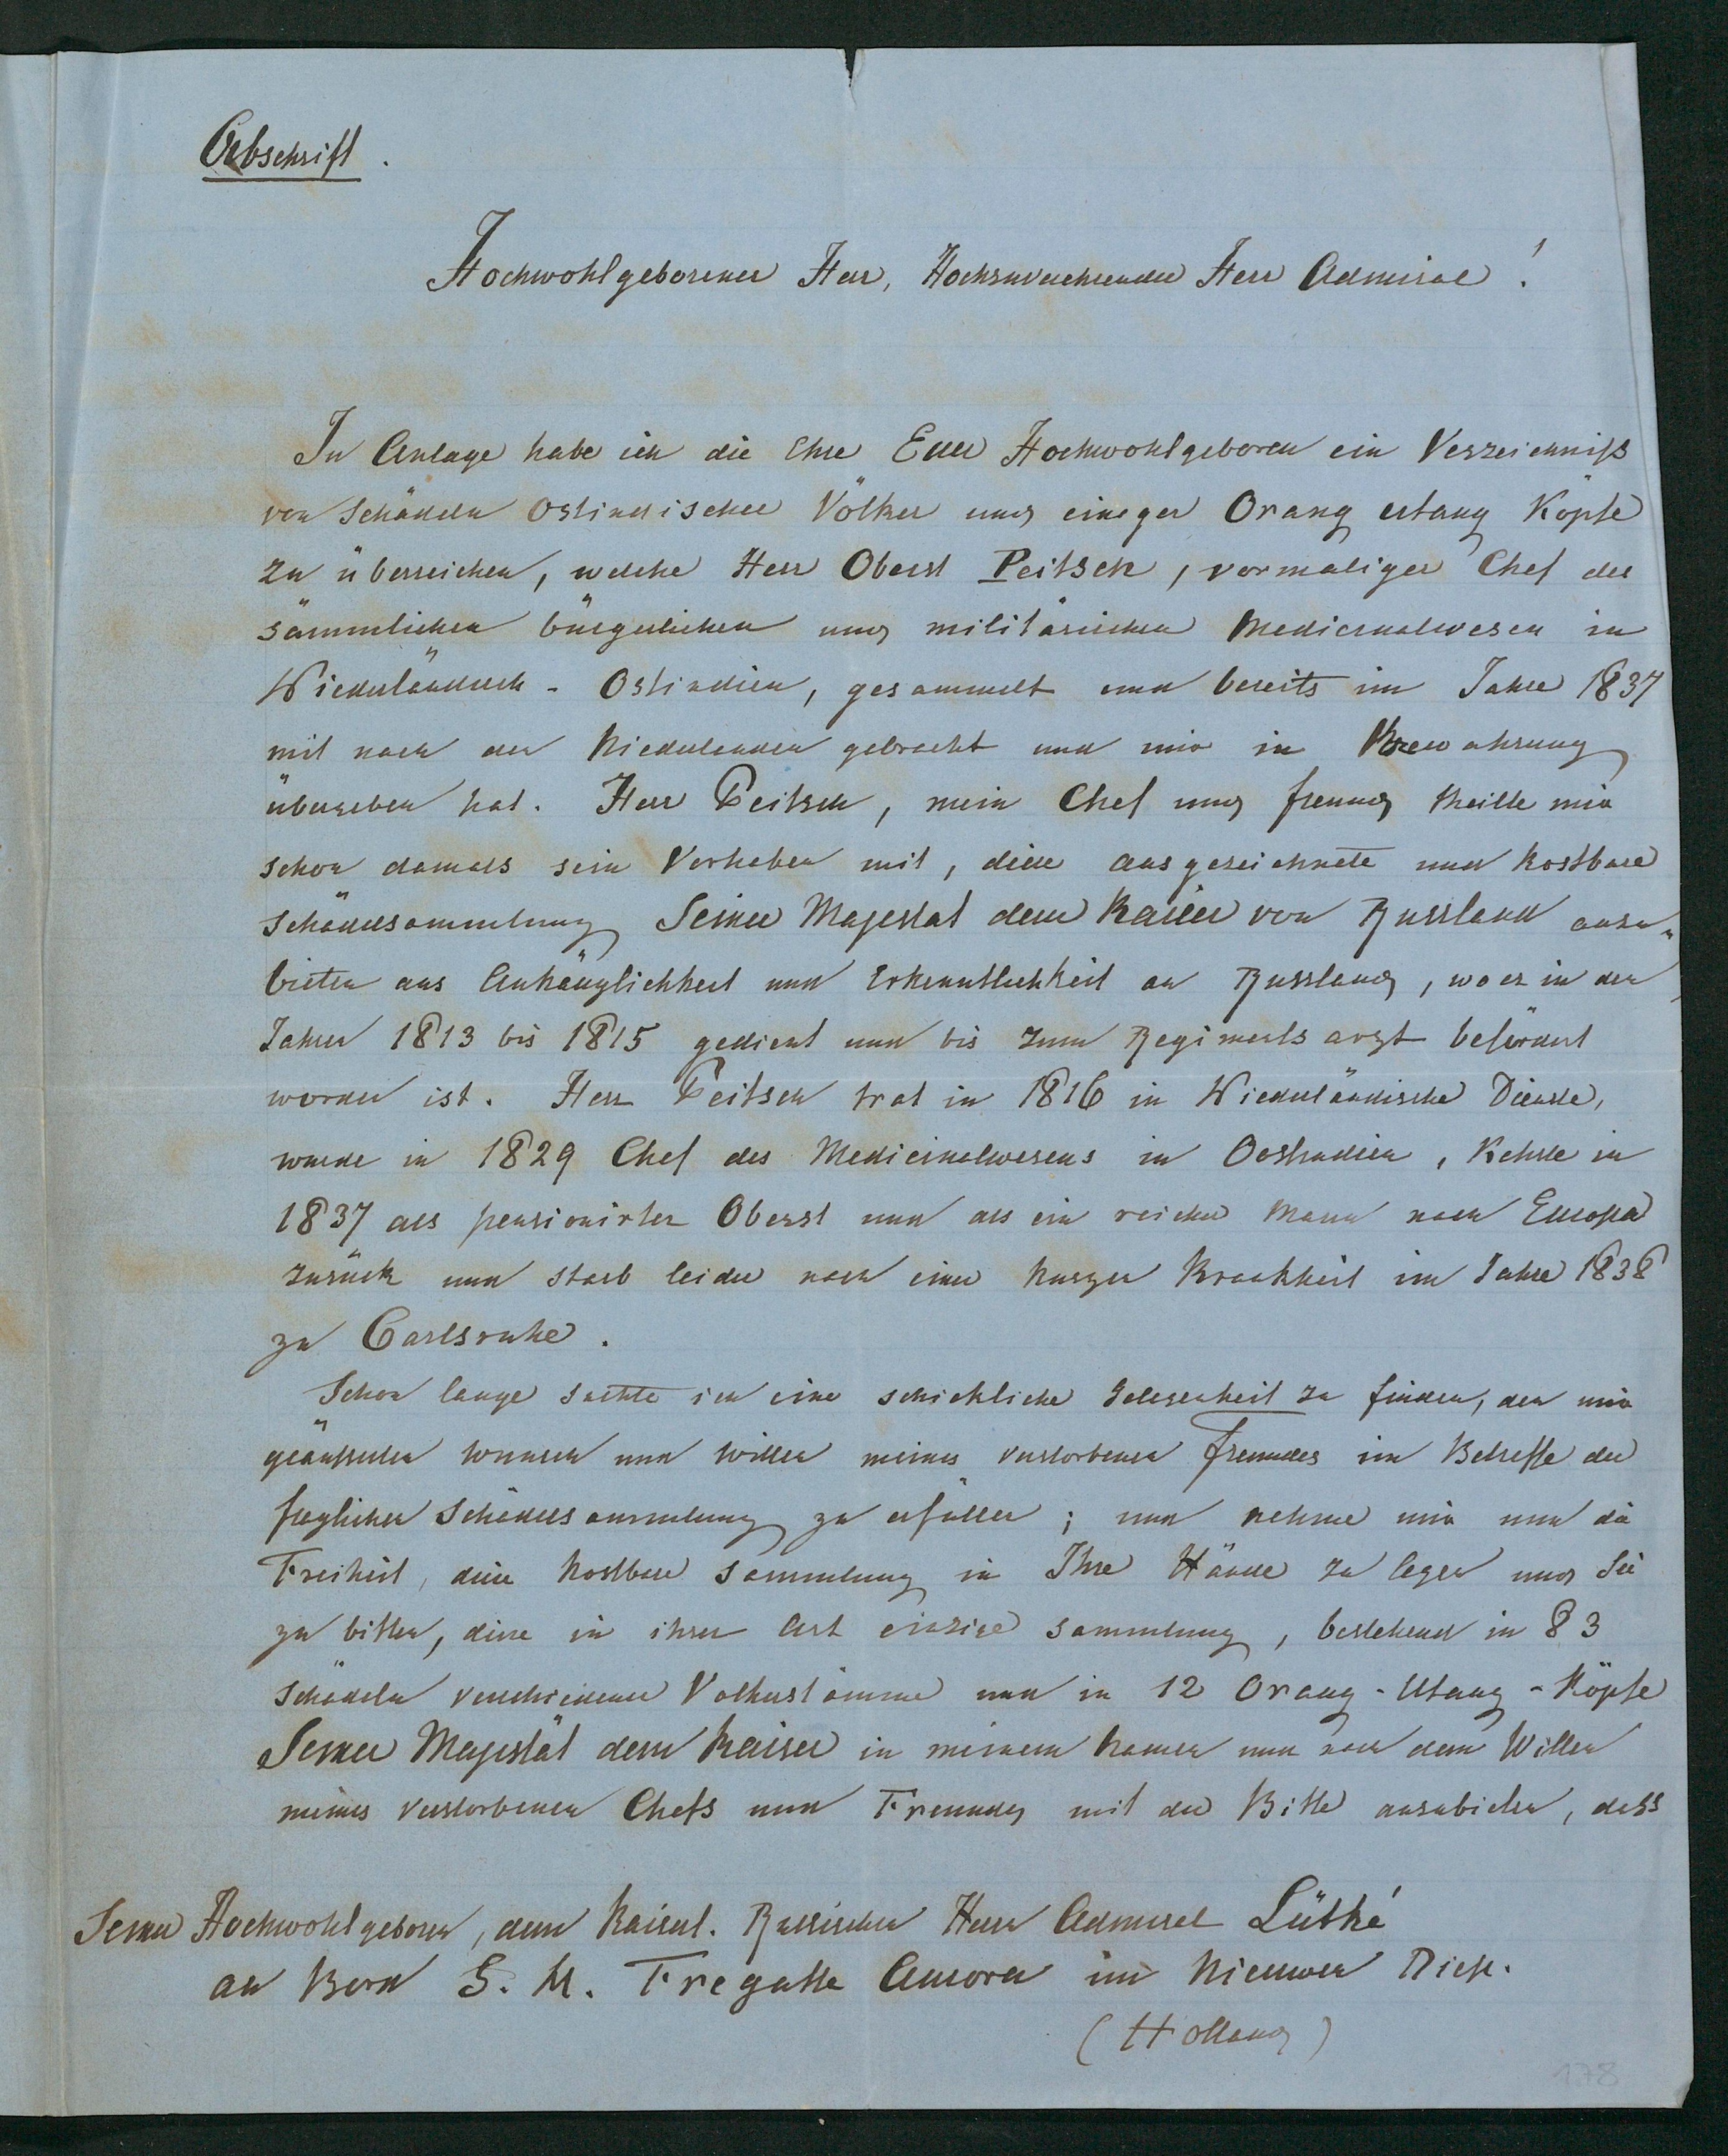 Abschrift.
Hochwohlgeborener Herr, Hochzuverehrender Herr Admiral!
In Anlage habe ich die Ehre Euer Hochwohlgeboren ein Verzeichniss
von Schädeln Ostindischer Völker und einiger Orang utang Köpfe
zu überreichen, welche Herr Oberst Peitsch, vormaliger Chef des
sämmlichen bürgerlichen und militärischen Medicinalwesen in
Niederländisch - Ostindien, gesammelt und bereits im Jahre 1837
mit nach den Niederlanden gebracht und mir in Bewahrung
übergeben hat. Herr Peitsch, mein Chef und Freund theilte mir
schon damals sein Vorhaben mit, diese ausgezeichnete und kostbare
Schädelsammlung Seiner Majestat dem Kaiser von Russland anzu-
bieten aus Anhänglichkeit und Erkenntlichkeit an Russland, wo er in den
Jahren 1813 bis 1815 gedient und bis zum Regimentsarzt befördert
worden ist. Herr Peitsch trat in 1816 in Niederländische Dienste,
wurde in 1829 Chef des Medicinalwesens in Oostindien, kehrte in
1837 als pensionirter Oberst und als ein reicher Mann nach Europa
zurück und starb leider nach einer kurzen Krankheit im Jahre 1838
zu Carlsruhe.
Schon lange suchte ich eine schickliche Gelegenheit zu finden, den mir
geäusserten Wunsch und Willen meines verstorbenen Freundes im Betreffe der
fraglichen Schädelsammlung zu erfüllen; und nehme mir nun die
Freiheit, diese kostbare Sammlung in Ihre Hände zu legen und Sie
zu bitten, diese in ihrer Art einzige Sammlung, bestehend in 83
Schädeln verschiedener Volksstämme und in 12 Orang-Utang-Köpfe
Seiner Majestät dem Kaiser in meinem Namen und nach dem Willen
meines verstorbenen Chefs und Freundes mit der Bitte anzubieten, dass
Seiner Hochwohlgeboren, dem Kaiserl. Russischen Herrn Admiral Lüthé
an Bord S. M. Fregatte Aurora im Nieuwen Diep.
(Holland)
178